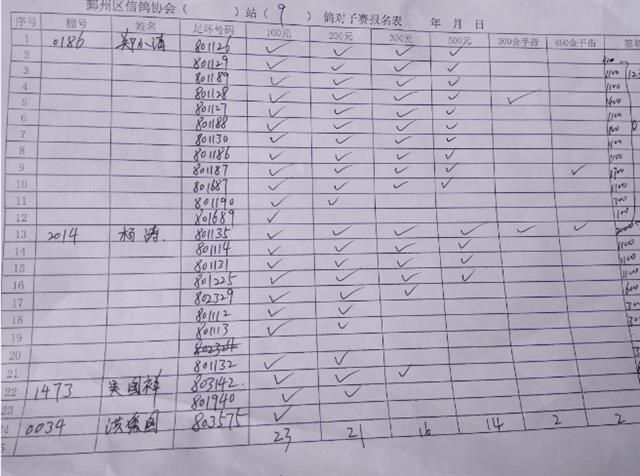 鄞州区信鸽协会( )站( 9 )鸽对子赛报名表 年 月 日
序号 棚号 姓名 足环号码 100元 200元 300元 500元 200金手指 600金手指 签名
1 0186 801126 ✓ ✓ ✓ ✓
2 801129 ✓ ✓ ✓ ✓ 1100
3 801189 ✓ ✓ ✓ ✓ 1100
4 801128 ✓ ✓ ✓ ✓ ✓
5 801127 ✓ ✓ ✓ ✓ 1100
6 801188 ✓ ✓ ✓ ✓
7 801130 ✓ ✓ ✓ ✓ 1100
8 801186 ✓ ✓ ✓ ✓ 1100
9 801187 ✓ ✓ ✓ ✓ ✓
10 801687 ✓ ✓ ✓ ✓ 1100
11 801190 ✓ ✓ 300
12 801689 ✓ 100
13 2014 杨涛 801135 ✓ ✓ ✓ ✓ ✓ ✓
14 801114 ✓ ✓ ✓ ✓ 1100
15 801131 ✓ ✓ ✓ ✓ 1100
16 801225 ✓ ✓ ✓ ✓ 1100
17 802329 ✓ ✓ ✓ 600
18 801112 ✓ ✓
19 801113 ✓ ✓
20
21 801132 ✓ ✓
22 1473 吴国祥 803142 ✓ ✓ ✓
23 801940 ✓ ✓
0034 803575 ✓
23 21 16 14 2 2